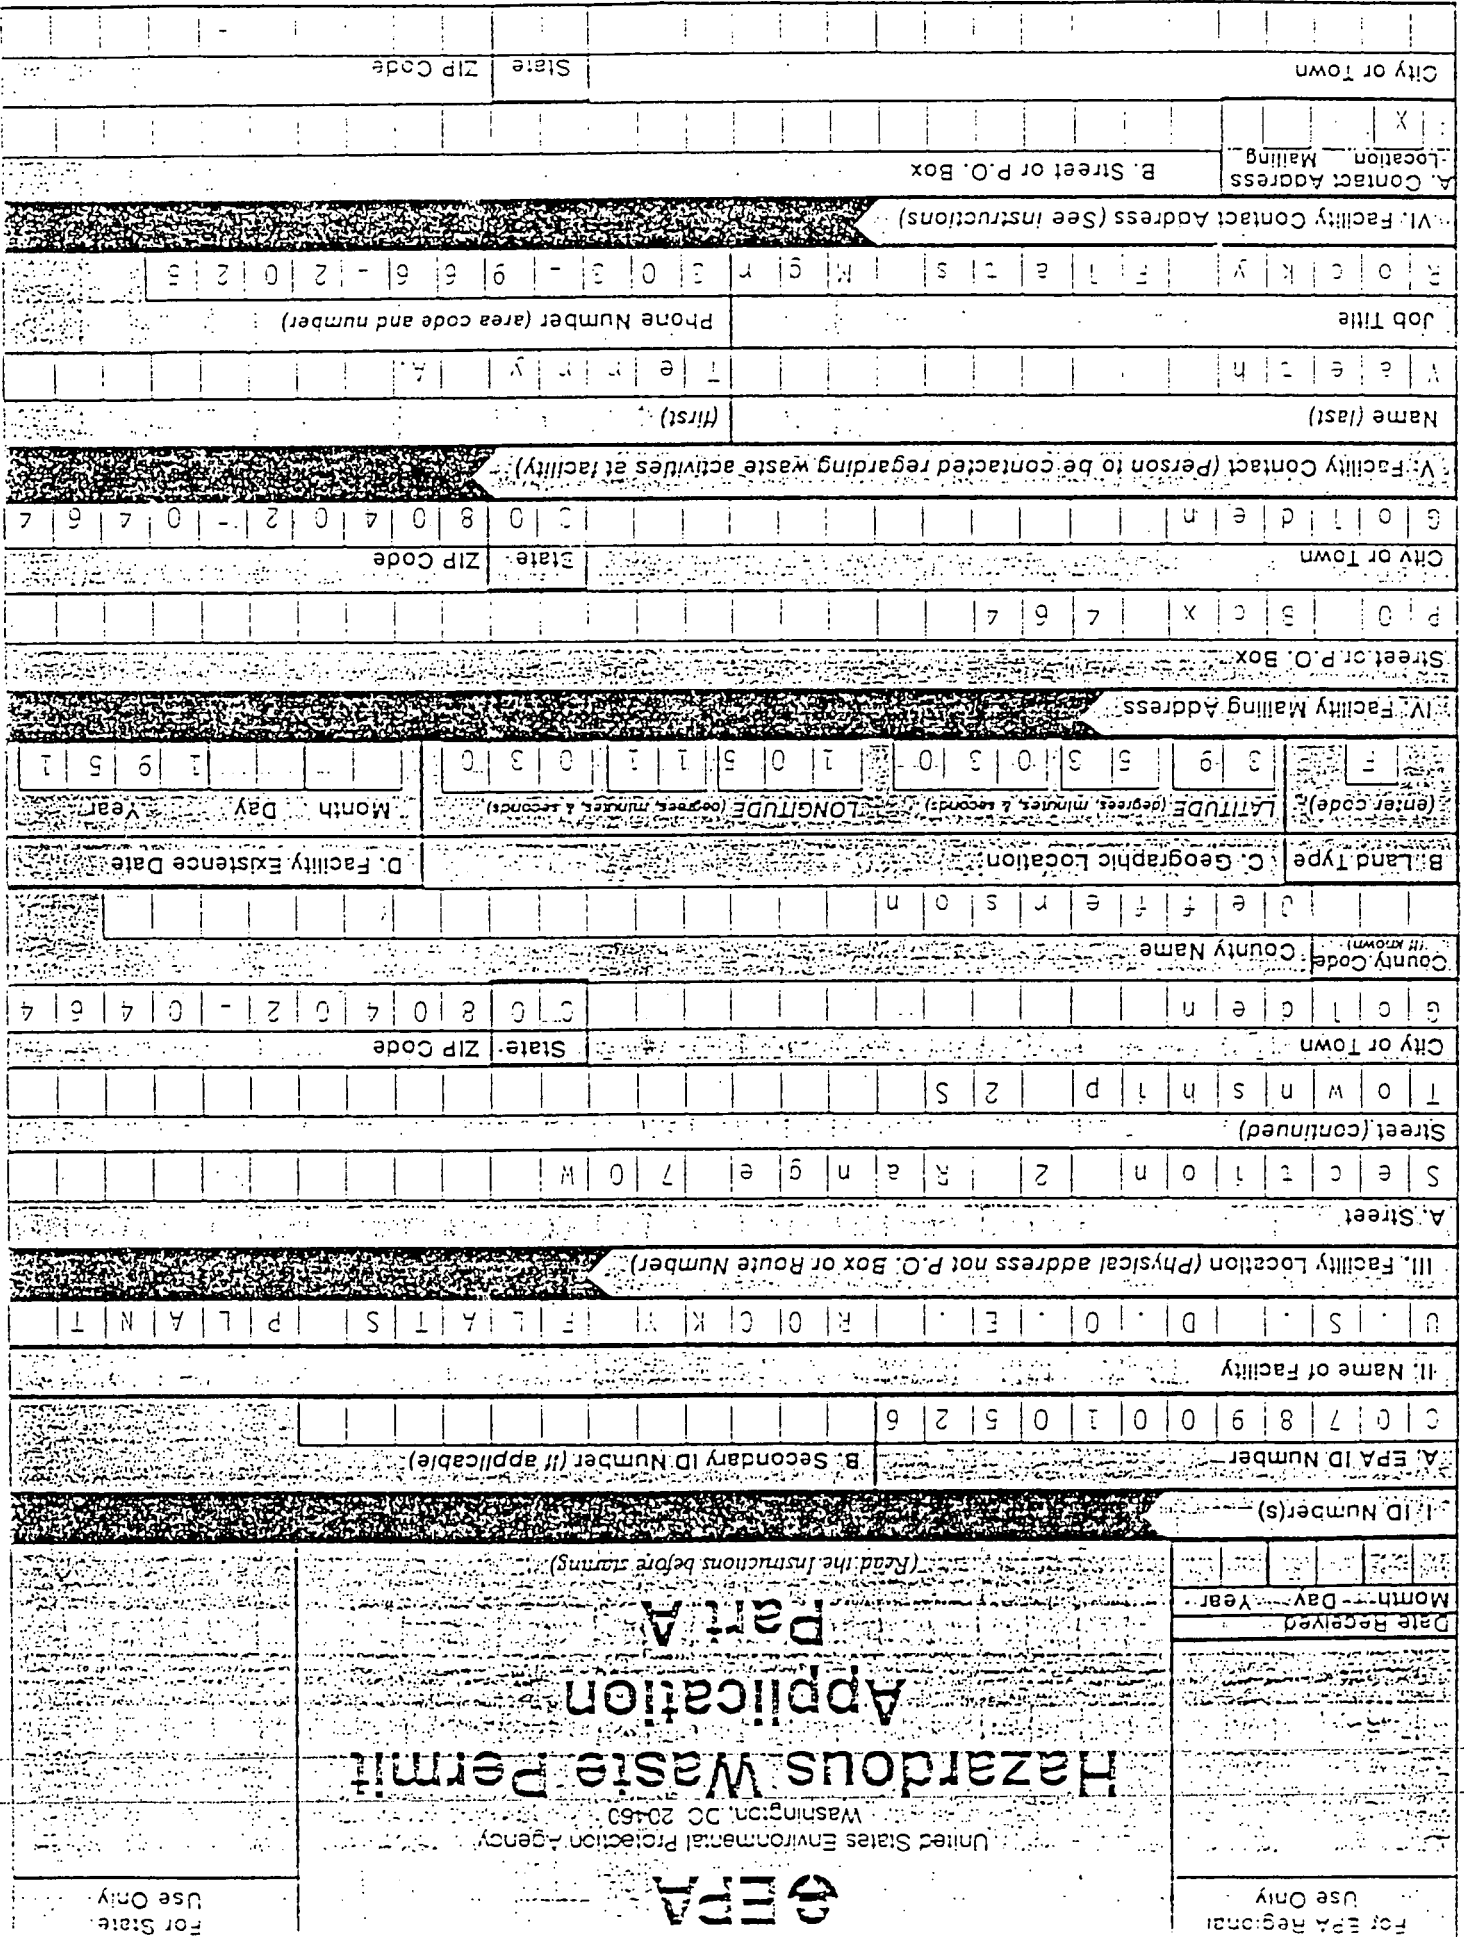 For EPA Regional
Use Only
EPA
For State
Use Only
United States Environmental Protection Agency
Washington, DC 20460
Hazardous Waste Permit
Application
Part A
(Read the Instructions before starting)
Date Received
Month Day Year
I. ID Number(s)
A. EPA ID Number B. Secondary ID Number (if applicable)
C 0 7 8 9 0 0 1 0 5 2 6
II. Name of Facility
U . S . D . O . E . R O C K Y F L A T S P L A N T
III. Facility Location (Physical address not P.O. Box or Route Number)
A. Street
S e c t i o n 2 R a n g e 7 0 W
Street (continued)
T o w n s h i p 2 S
City or Town State ZIP Code
G o l d e n C O 8 0 4 0 2 - 0 4 6 4
County Code (if known) County Name
J e f f e r s o n
B. Land Type C. Geographic Location D. Facility Existence Date
(enter code) LATITUDE (degrees, minutes, & seconds) LONGITUDE (degrees, minutes, & seconds) Month Day Year
F 3 9 5 3 0 3 0 1 0 5 1 1 0 3 0 1 9 5 1
IV. Facility Mailing Address
Street or P.O. Box
P O B o x 4 6 4
City or Town State ZIP Code
G o l d e n C O 8 0 4 0 2 - 0 4 6 4
V. Facility Contact (Person to be contacted regarding waste activities at facility)
Name (last) (first)
V a e t h T e r r y A .
Job Title Phone Number (area code and number)
R o c k y F l a t s M g r 3 0 3 - 9 6 6 - 2 0 2 5
VI. Facility Contact Address (See instructions)
A. Contact Address
Location Mailing B. Street or P.O. Box
X
City or Town State ZIP Code
-